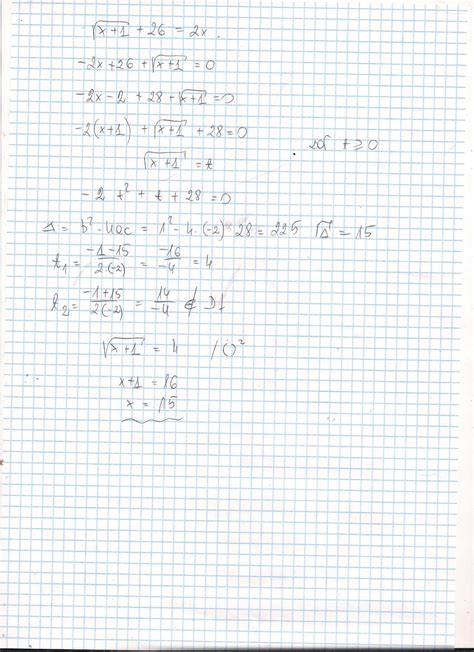 √(x+1) + 26 = 2x.
-2x+26 + √(x+1) = 0
-2x-2 + 28 + √(x+1) = 0
-2(x+1) + √(x+1) + 28 = 0
√(x+1) = t t ≥ 0
-2 t² + t + 28 = 0
Δ = b²-4ac = 1² - 4·(-2)·28 = 225 √Δ = 15
t₁ = (-1-15)/(2·(-2)) = -16/-4 = 4
t₂ = (-1+15)/(2(-2)) = 14/-4 ∉ Df
√(x+1) = 4 /()²
x+1 = 16
x = 15